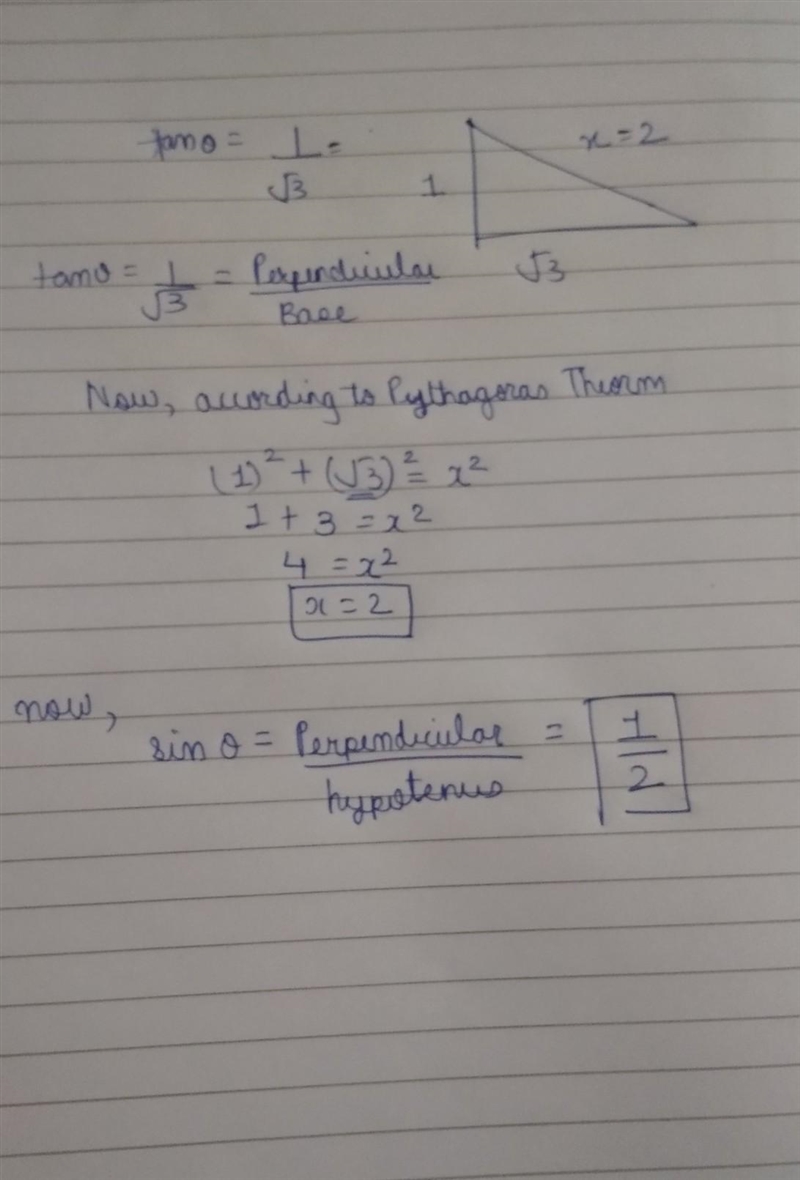 tanθ = 1/√3 =
x = 2
1
√3
tanθ = 1/√3 = Perpendicular/Base
Now, according to Pythagoras Theorm
(1)² + (√3)² = x²
1 + 3 = x²
4 = x²
x = 2
now,
sin θ = Perpendicular/hypotenus = 1/2